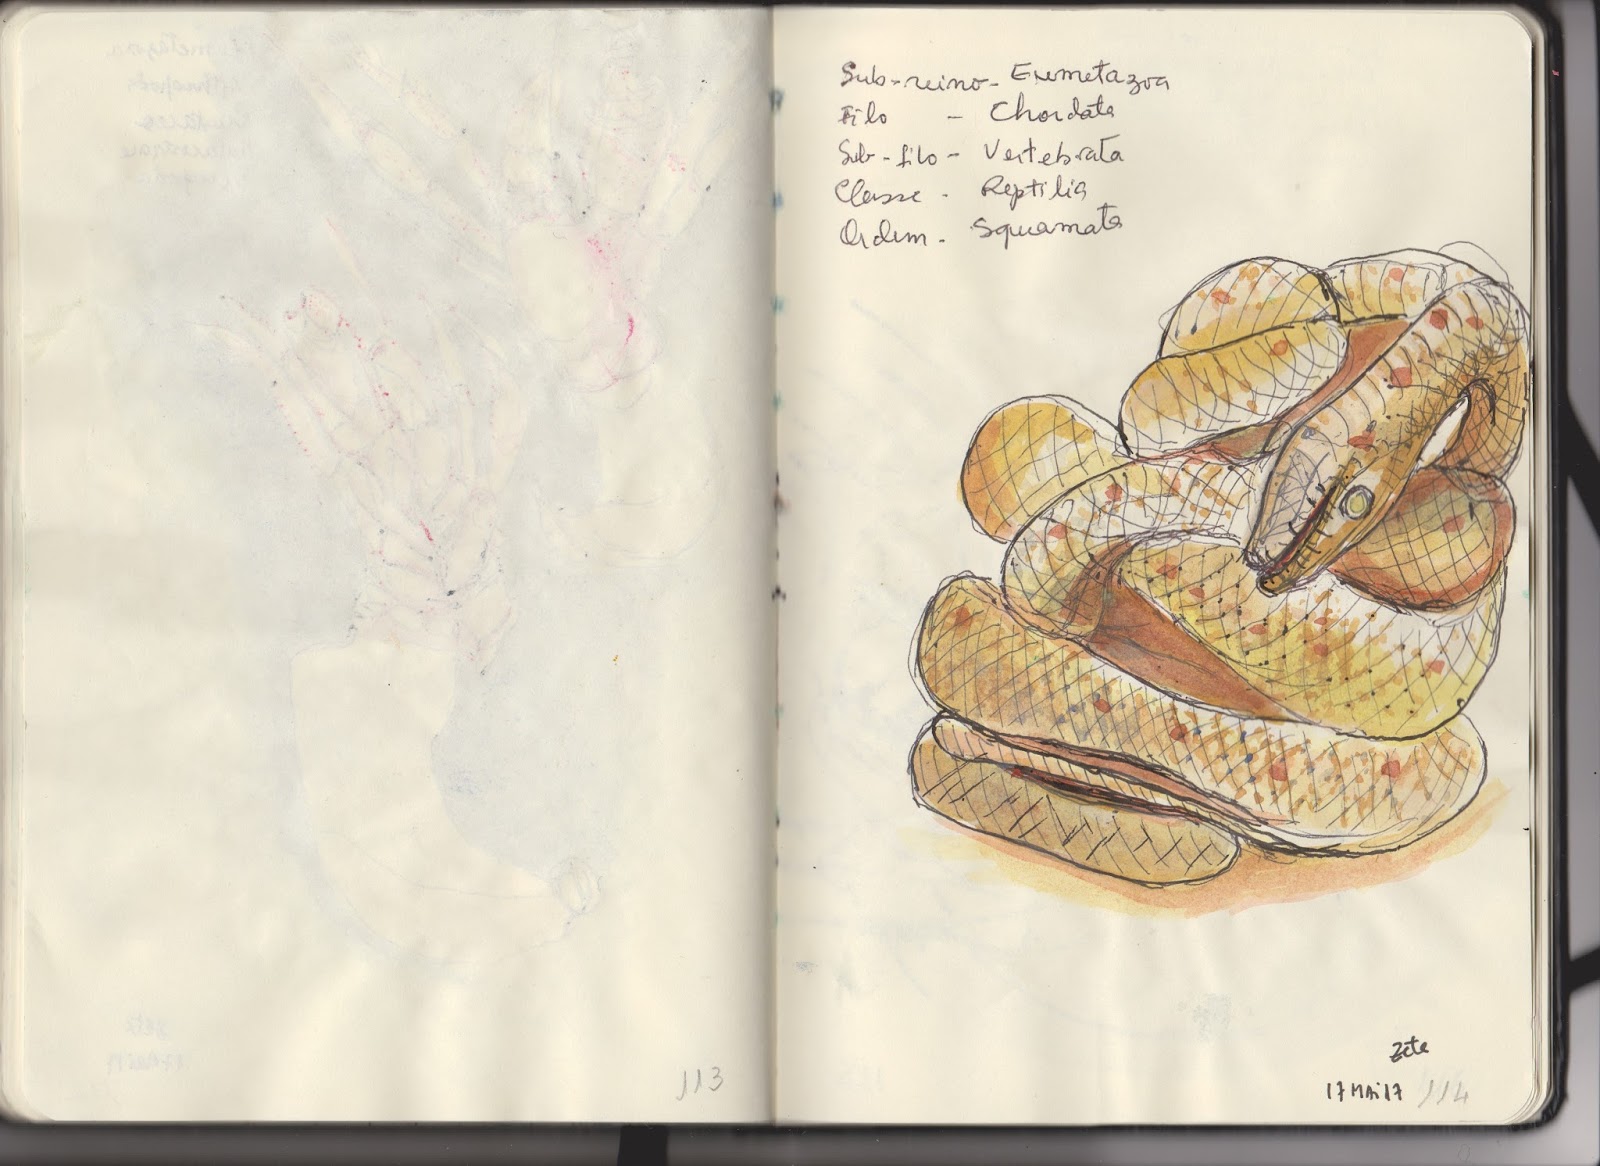 113
Sub-reino - Eumetazoa
Filo - Chordata
Sub-filo - Vertebrata
Classe - Reptilia
Ordem - Squamata
Zete
17 MAI 17
114